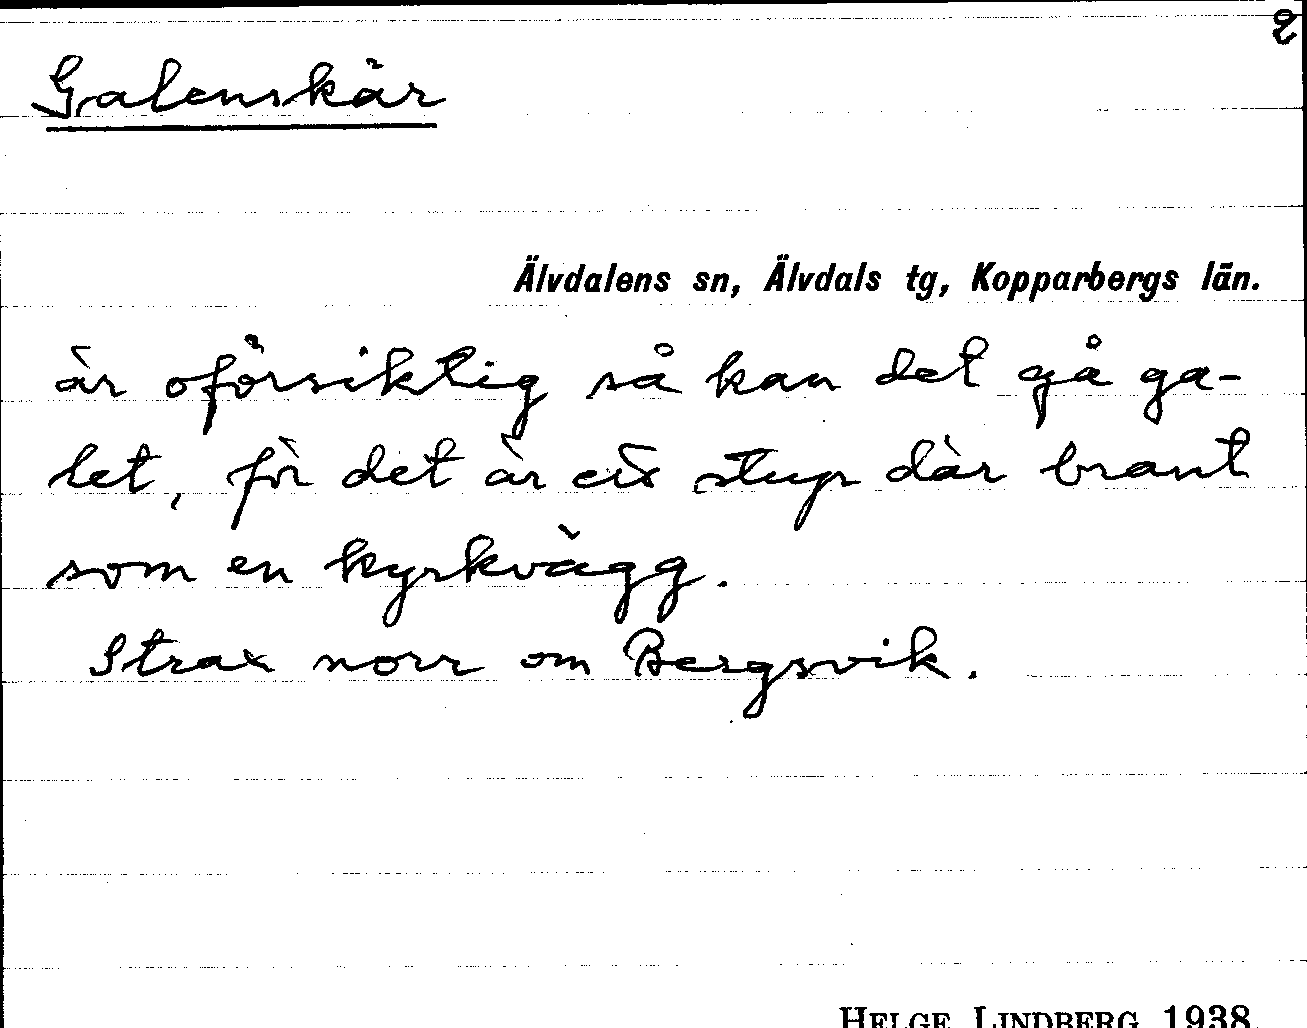 2
Galenskär
Älvdalens sn, Älvdals tg, Kopparbergs län.
är oförsiktig så kan det gå ga-
let, för det är ett stup där brant
som en kyrkvägg.
Strax norr om Bergsvik.
HELGE LINDBERG 1938.